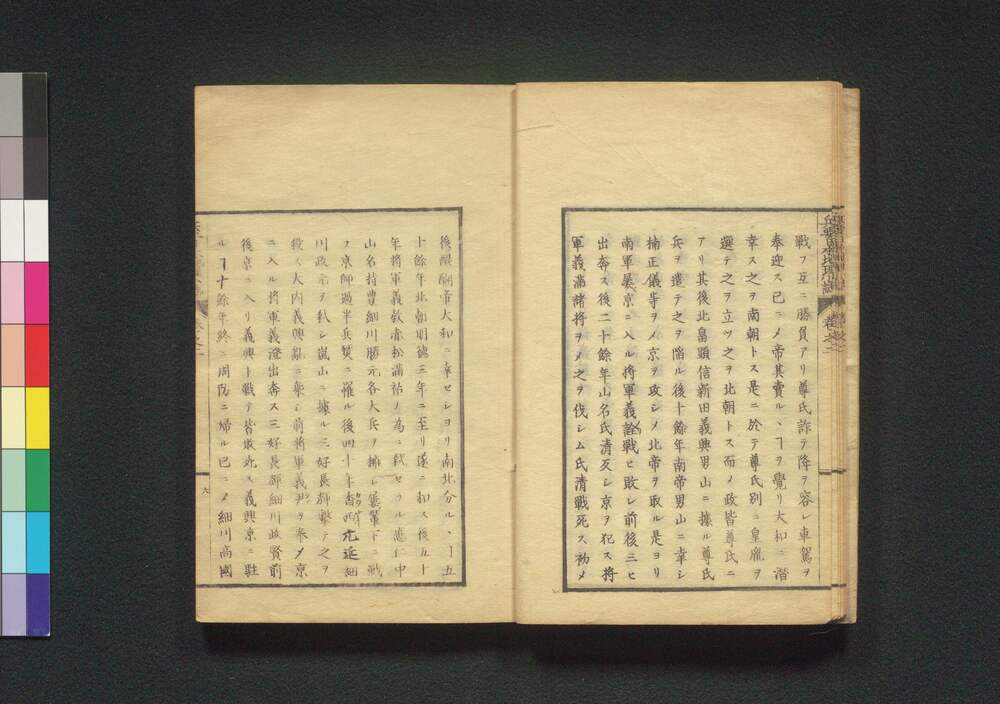 戰フ互ニ勝負アリ尊氏詐テ降ヲ容レ車駕ヲ
奉迎ス已ニメ帝其賣ルヽヿヲ覺リ大和ニ潛
幸ス之ヲ南朝トス是ニ於テ尊氏別ニ皇胤ヲ
選テ之ヲ立ツ之ヲ北朝トス而メ政皆尊氏ニ
アリ其後北畠顯信新田義興男山ニ據ル尊氏
兵ヲ遣テ之ヲ陷ル後十餘年南帝男山ニ幸シ
楠正儀等ヲメ京ヲ攻シメ北帝ヲ取ル是ヨリ
南軍屡京ニ入ル將軍義詮戰ヒ敗レ前後三ヒ
出奔ス後二十餘年山名氏清反シ京ヲ犯ス將
軍義滿諸將ヲメ之ヲ伐シム氏清戰死ス初メ
後醍醐帝大和ニ幸セシヨリ南北分ルヽヿ五
十餘年北朝明德三年ニ至リ遂ニ和ス後五十
年將軍義敎赤松滿祐ノ為ニ弑セラル應仁中
山名持豊細川勝元各大兵ヲ擁シ輦下ニ戰
フ京師過半兵燹ニ罹ル後四十年香西元近細
川政元ヲ弑シ嵐山ニ據ル三好長輝擊テ之ヲ
殺ス大内義興亂ニ乘シ前將軍義尹ヲ奉メ京
ニ入ル將軍義澄出奔ス三好長輝細川政賢前
後京ニ入リ義興ト戰テ皆敗死ス義興京ニ駐
ルヿ十餘年終ニ周防ニ歸ル已ニメ細川高國
卷之二
六